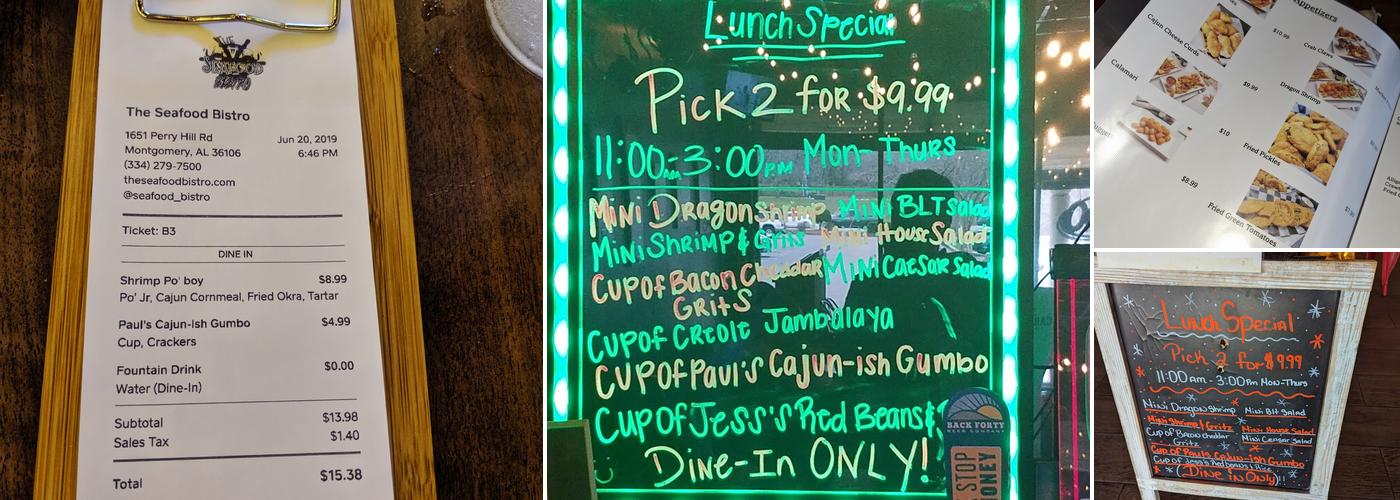 THE
SEAFOOD
BISTRO
The Seafood Bistro
1651 Perry Hill Rd
Montgomery, AL 36106
(334) 279-7500
theseafoodbistro.com
@seafood_bistro
Jun 20, 2019
6:46 PM
Ticket: B3
DINE IN
Shrimp Po' boy $8.99
Po' Jr, Cajun Cornmeal, Fried Okra, Tartar
Paul's Cajun-ish Gumbo $4.99
Cup, Crackers
Fountain Drink $0.00
Water (Dine-In)
Subtotal $13.98
Sales Tax $1.40
Total $15.38
Lunch Special
Pick 2 for $9.99
11:00am-3:00pm Mon-Thurs
Mini Dragon Shrimp Mini BLT Salad
Mini Shrimp & Grits Mini House Salad
Cup of Bacon Cheddar Mini Caesar Salad
Grits
Cup of Creole Jambalaya
Cup of Paul's Cajun-ish Gumbo
Cup of Jess's Red Beans &
Dine-In ONLY!
BACK FORTY
BEER COMPANY
STOP
Appetizers
Cajun Cheese Curds
$10.99
Crab Claws
Calamari
$9.99
Dragon Shrimp
$10
Fried Pickles
$8.99
Fried Green Tomatoes
Lunch Special
Pick 2 for $9.99
11:00 am - 3:00 pm Mon-Thurs
Mini Dragon Shrimp Mini Blt Salad
Mini Shrimp & Gritz Mini House Salad
Cup of Bacon Cheddar Mini Caesar Salad
Gritz
Cup of Paul's Cajun-ish Gumbo
Cup of Jess's Red beans & Rice
(Dine in Only)!!